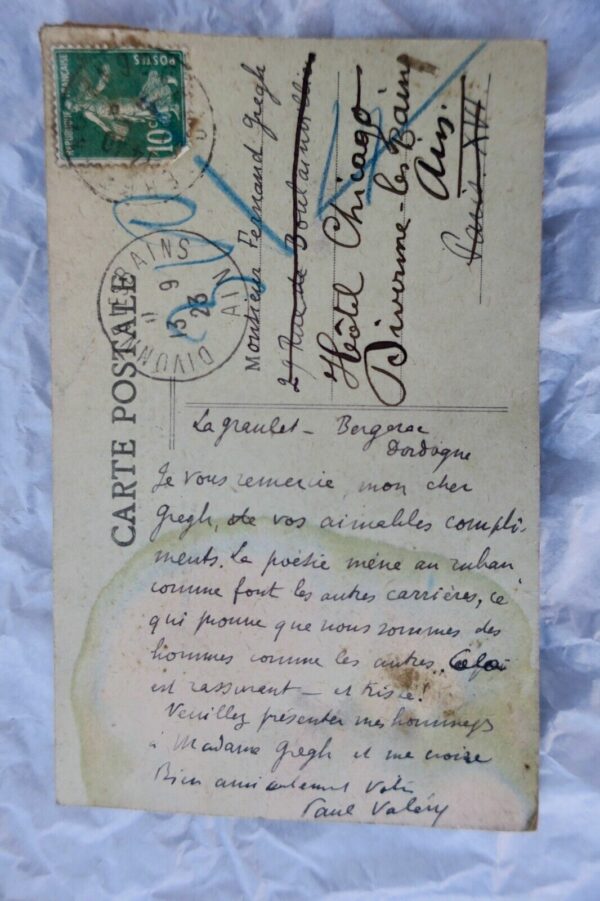 CARTE POSTALE
RÉPUBLIQUE FRANÇAISE
POSTES
10c
DIVONNE-LES-BAINS
AIN
13 9
23
Monsieur Fernand Gregh
29 Rue de Boulainvilliers
Hôtel Chicago
Divonne-les-Bains
Ain.
Paris XVI
Lagraulet - Bergerac
Dordogne
Je vous remercie, mon cher
Gregh, de vos aimables compli-
ments. La poésie mène au ruban
comme font les autres carrières, ce
qui prouve que nous sommes des
hommes comme les autres. Cela
est rassurant — et triste!
Veuillez présenter mes hommages
à Madame Gregh et me croire
Bien amicalement Votre
Paul Valéry